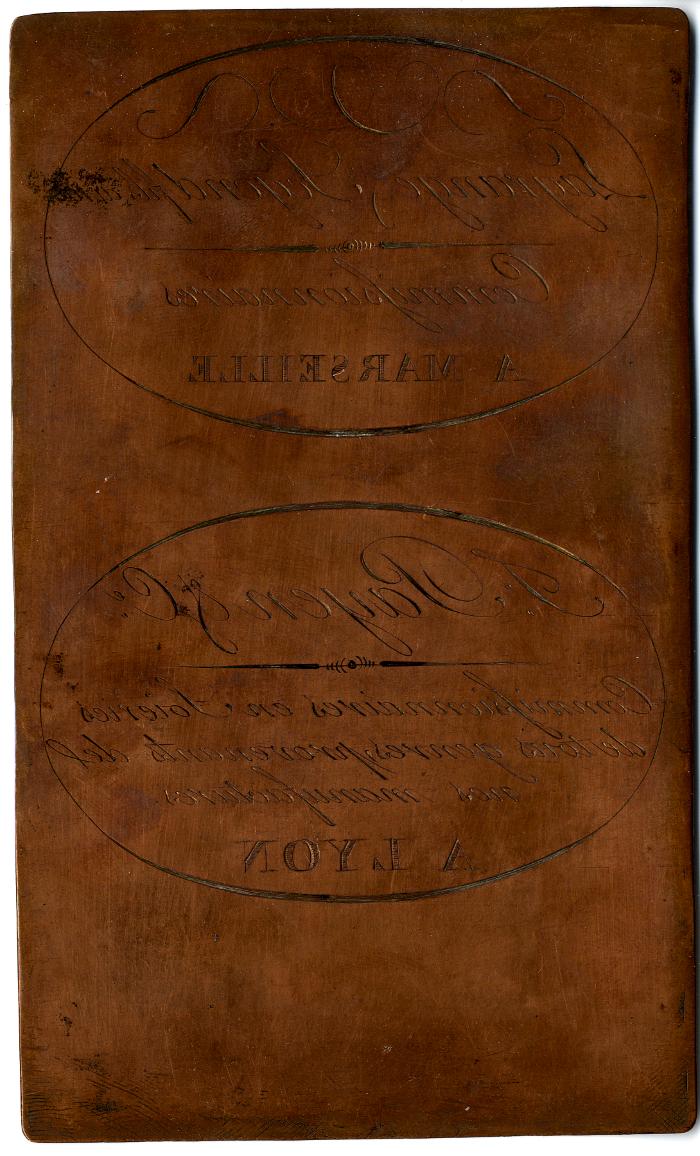 Commissionnaires
A MARSEILLE
F. Payen & Cie
Commissionnaires en Soieries
de tous genres provenants del
nos manufactures
A LYON